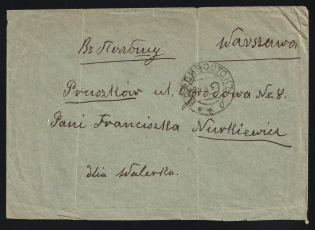 Въ Польшу Warszawa
Pruszków ul. Ogrodowa № 8.
Pani Franciszka Nurkiewicz
dla Walerka.